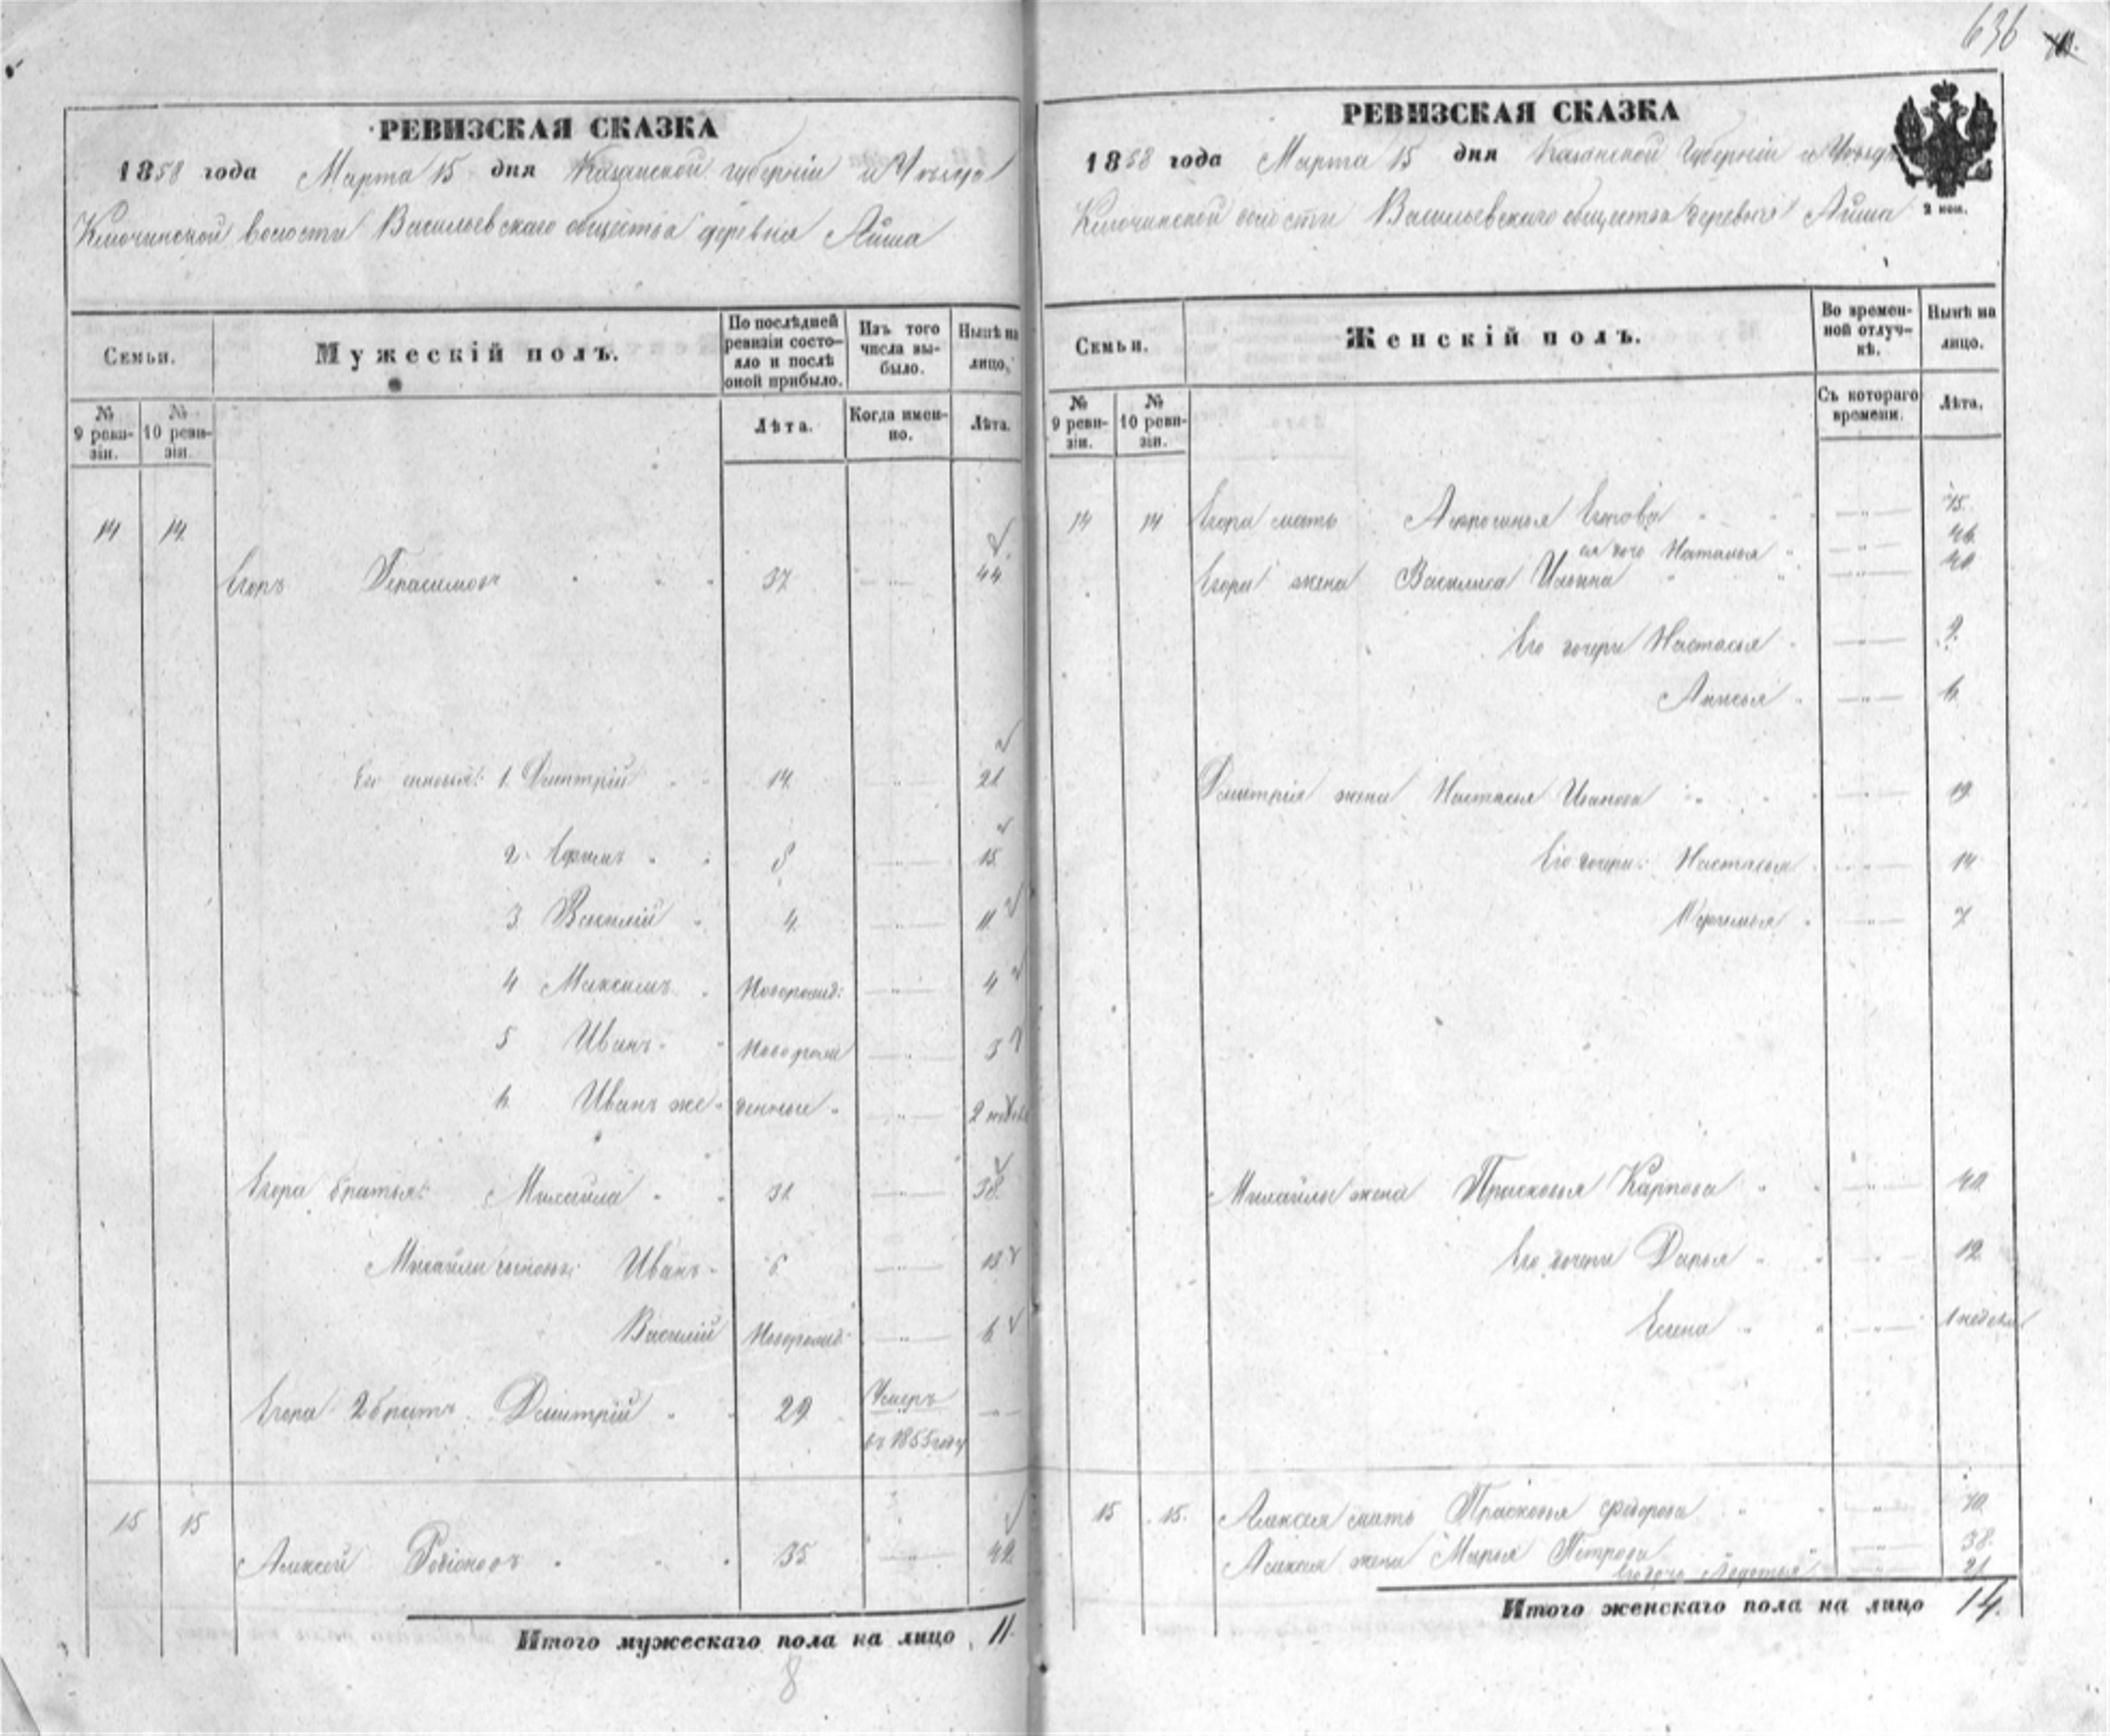 636
РЕВИЗСКАЯ СКАЗКА
1858 года Марта 15 дня Казанской губерніи и Уѣзда
Ключинской волости Васильевскаго общества деревня Айша
Семьи.
Мужескій полъ.
По послѣдней ревизіи состояло и послѣ оной прибыло.
Изъ того числа выбыло.
Нынѣ на лицо.
№ 9 ревизіи.
№ 10 ревизіи.
Лѣта.
Когда именно.
Лѣта.
14 14
Егоръ Герасимовъ 37 44
Его сыновья: 1. Дмитрій 14 21
2 Ефимъ 8 15
3 Василій 4 11
4 Максимъ Новорожд: 4
5 Иванъ Новорож 3
6 Иванъ же денные 2 недѣли
Егора братья: Михайла 31 38
Михайлы сыновья: Иванъ 6 13
Василій Новорожд: 6
Егора 2 братъ Дмитрій 29 Умеръ
въ 1855 году
15 15
Алексей Родіоновъ 35 42
Итого мужескаго пола на лицо 11.
8
РЕВИЗСКАЯ СКАЗКА
1858 года Марта 15 дня Казанской Губерніи и Уѣзда
Ключинской волости Васильевскаго общества деревня Айша
2 коп.
Семьи.
Женскій полъ.
Во временной отлучкѣ.
Нынѣ на лицо.
№ 9 ревизіи.
№ 10 ревизіи.
Съ котораго времени.
Лѣта.
14 14 Егора мать Егорова 75
ея дочь Наталья 46
Егора жена Василиса Ильина 40
Его дочери Настасья 9
6
Дмитрія жена Настасья Иванова 19
Его дочери: Настасья 14
7
Михайлы жена Прасковья Карпова 40
Его дочери Дарья 12
Елена 1 недѣля
15 15. Алексея мать Прасковья Федорова 70
Алексея жена Марья Петрова 38
его дочь 21
Итого женскаго пола на лицо 14.